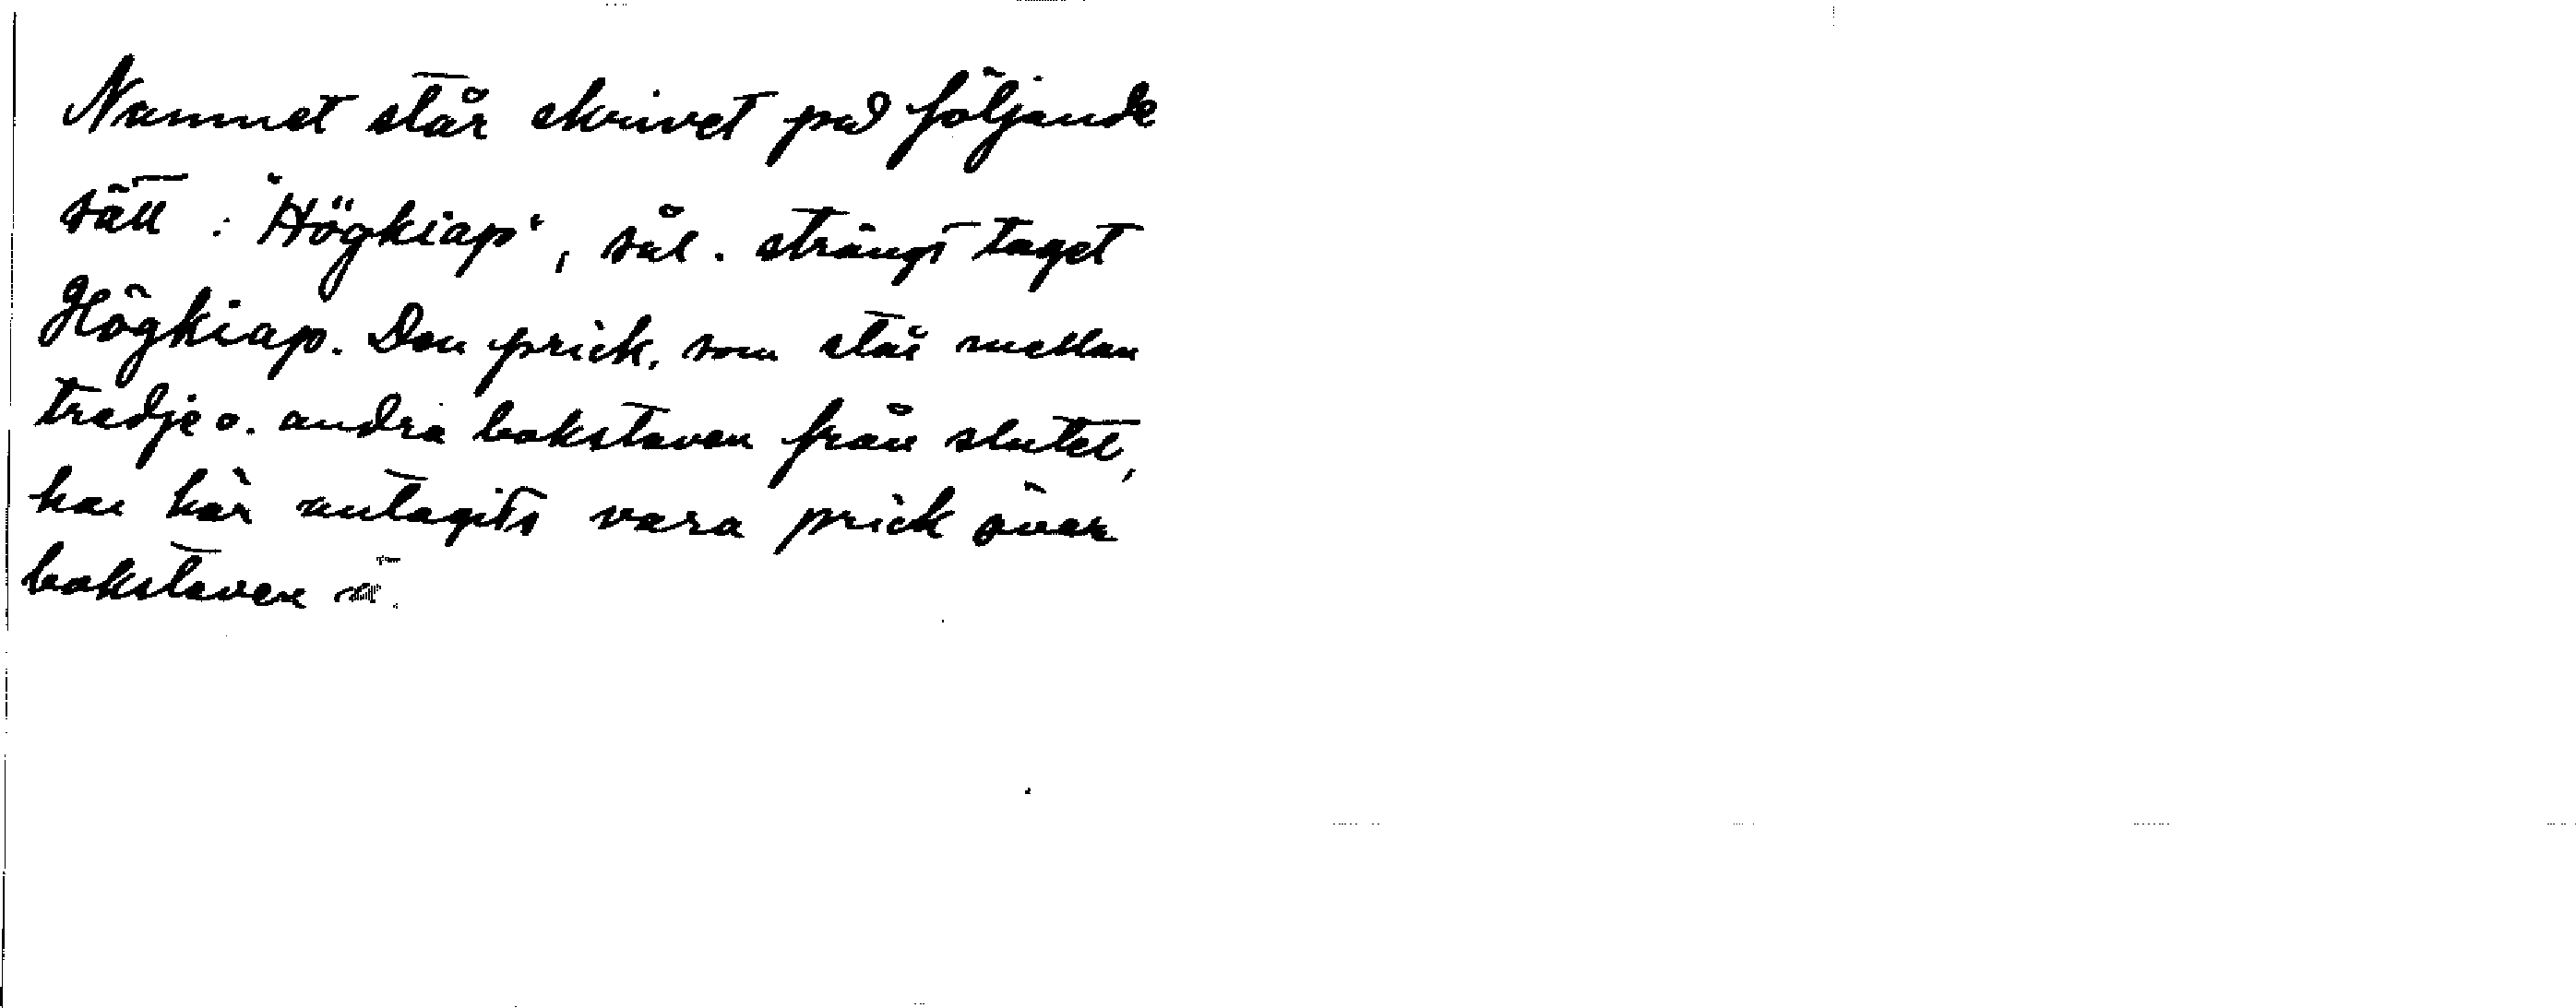 Namnet står skrivet på följande
sätt: "Högkiap", sål. strängt taget
Högkiap. Den prick, som står mellan
tredje o. andra bokstaven från slutet,
har här antagits vara prick över
bokstaven ä.